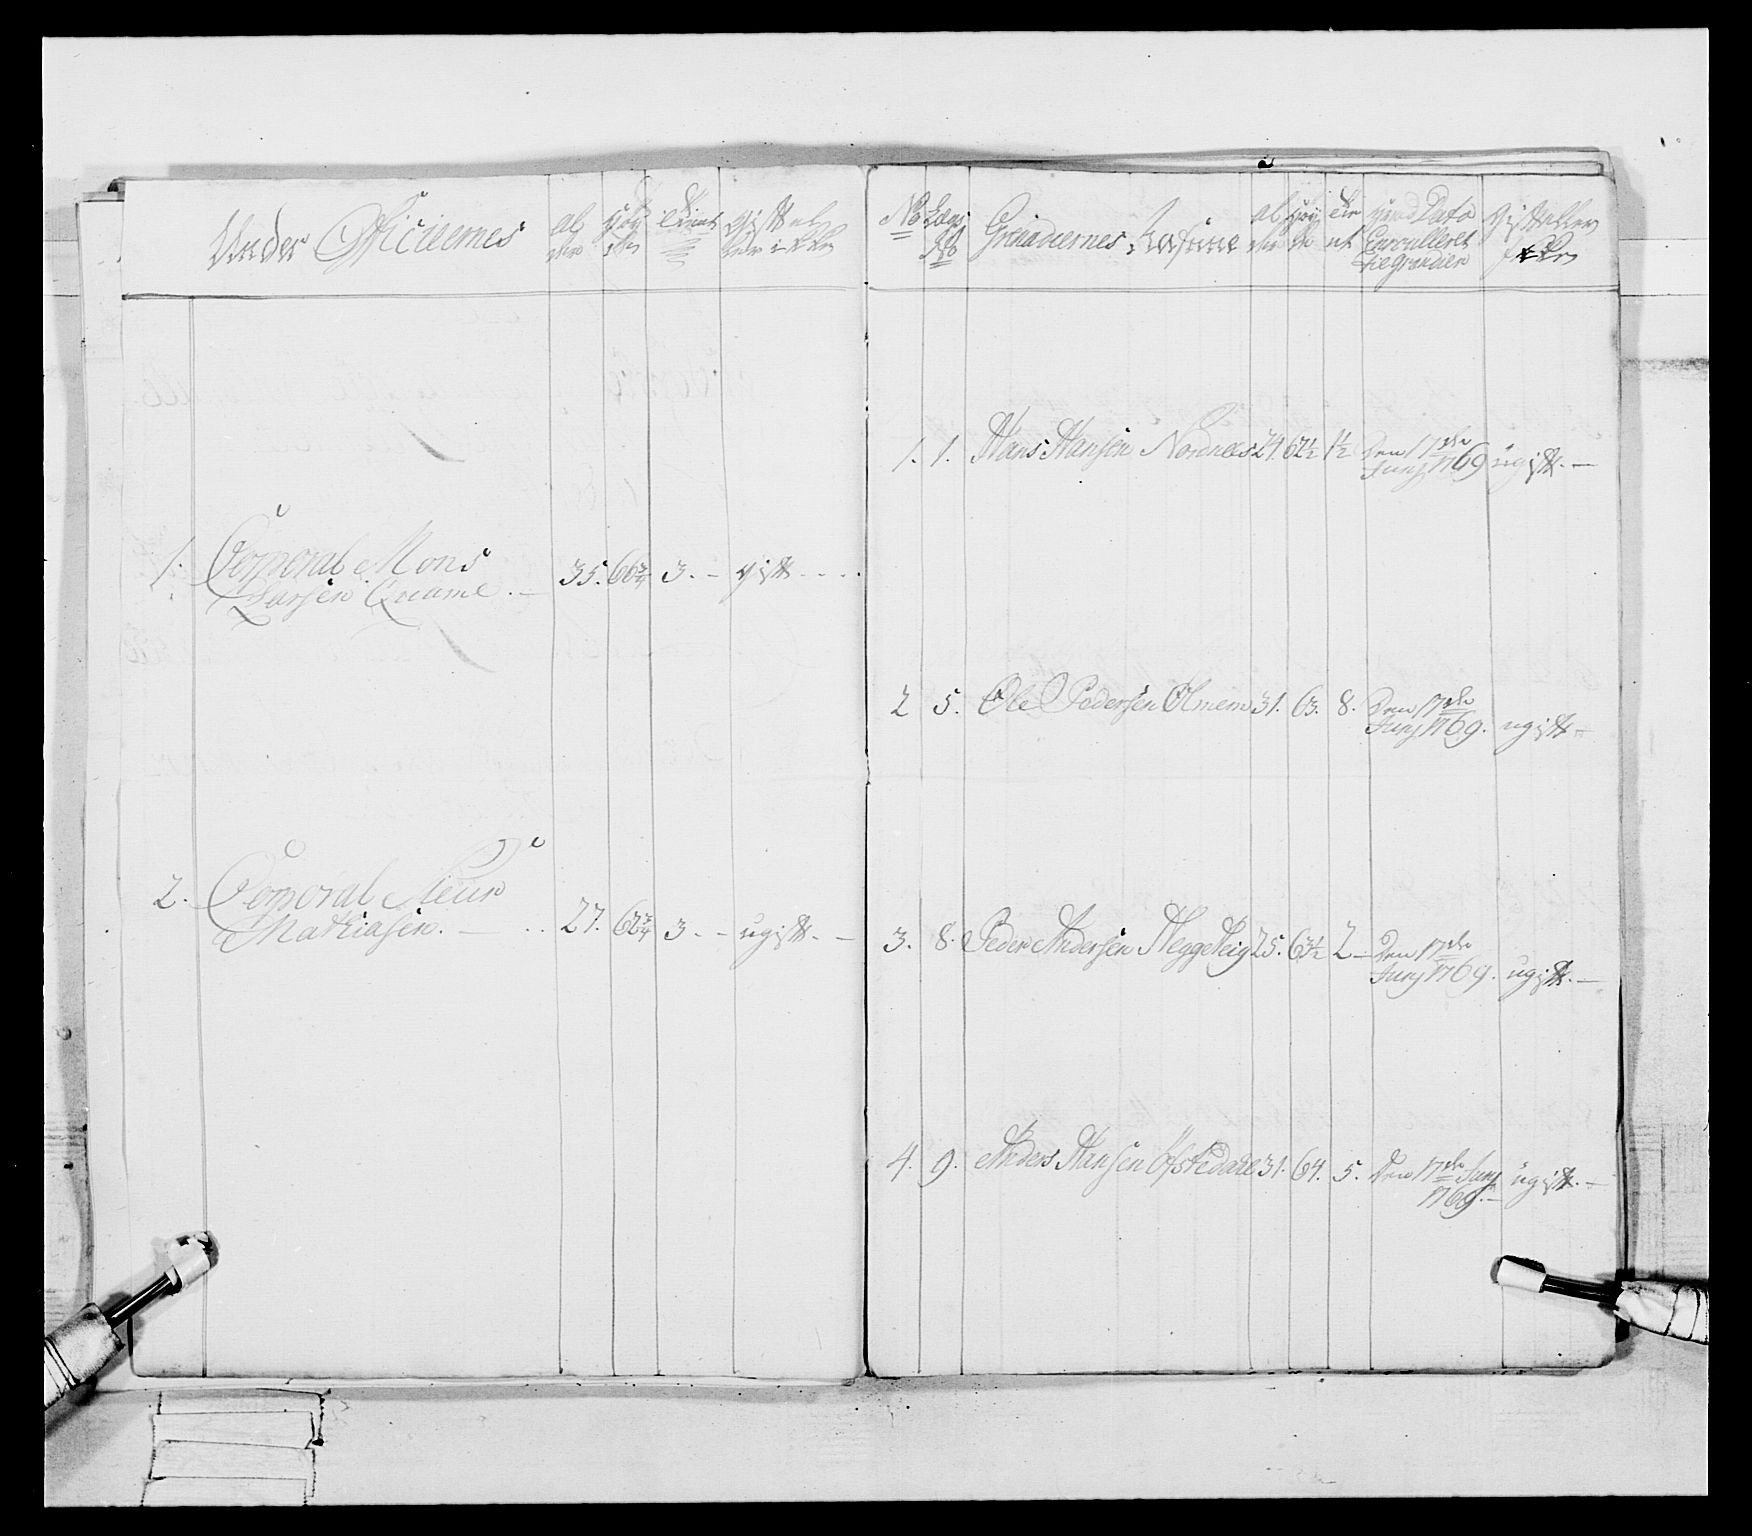 Under Officiernes
Al
der
Høy
den
tient
gift el
ler ikke
1. Corporal Mons
Larsen Qvame. 35. 66 3/4 3. - gift
2. Corporal Siur
Mathiasen. 27. 62 3/4 3 - ugift. -
No Lægs
No
Grenadeernes Nafne
Al
der
Høy
de
tie
nt
hvad Dato
Enroulleret
til grenadier
gift eller
ikke
1. 1. Hans Hansen Nordnees 24. 62 1/2 1 1/2 Den 17de
Junj 1769 ugift. -
2 5. Ole Pedersen Olmem 31. 63. 8. Den 17de
Junj 1769. ugift -
3. 8. Peder Andersen Heggesteig 25. 63 1/2 2 - Den 17de
Junj 1769. ugift. -
4. 9. Anders Hansen Ofstedahl 31. 64. 5. Den 17de Junj
1769. - ugift. -